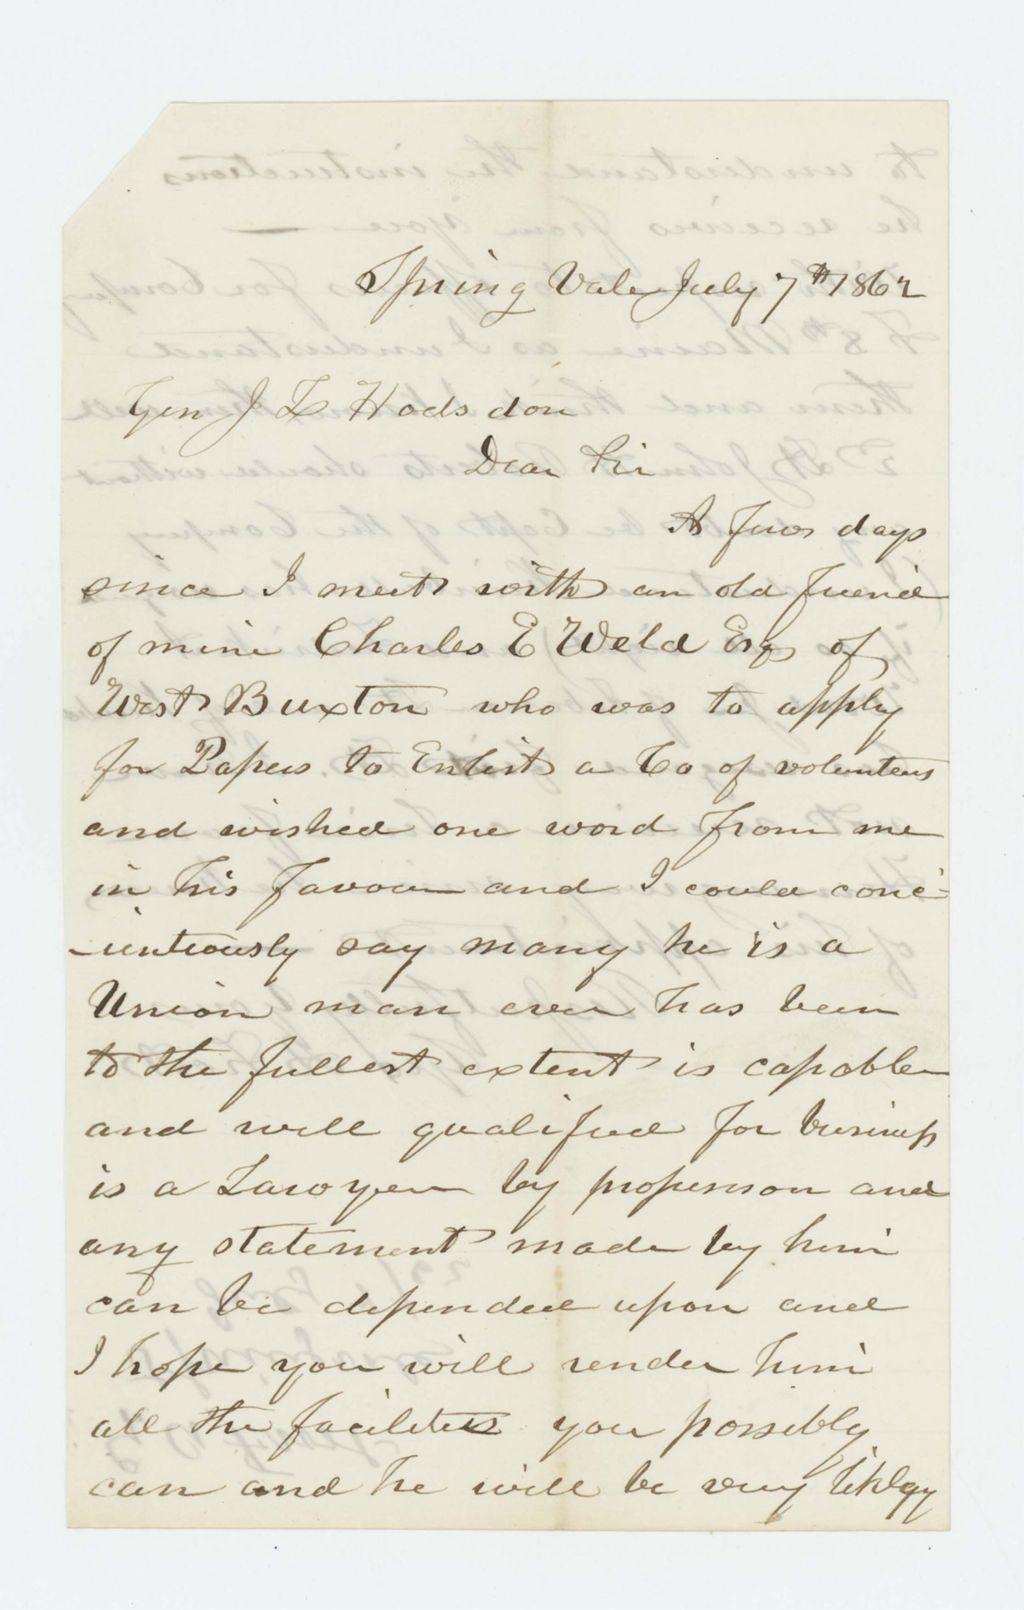 Spring Vale July 7th 1862
Gen J L Hodsdon
Dear Sir
A few days
since I meet with an old friend
of mine Charles E Weld Esq of
West Buxton who was to apply
for Papers to Enlist a Co of volunteers
and wished one word from me
in his favour and I could conc-
-ientiously say many he is a
Union man ever has been
to the fullest extent is capable
and well qualified for business
is a Lawyer by profession and
any statement made by him
can be depended upon and
I hope you will render him
all the facilities you possibly
can and he will be very likley